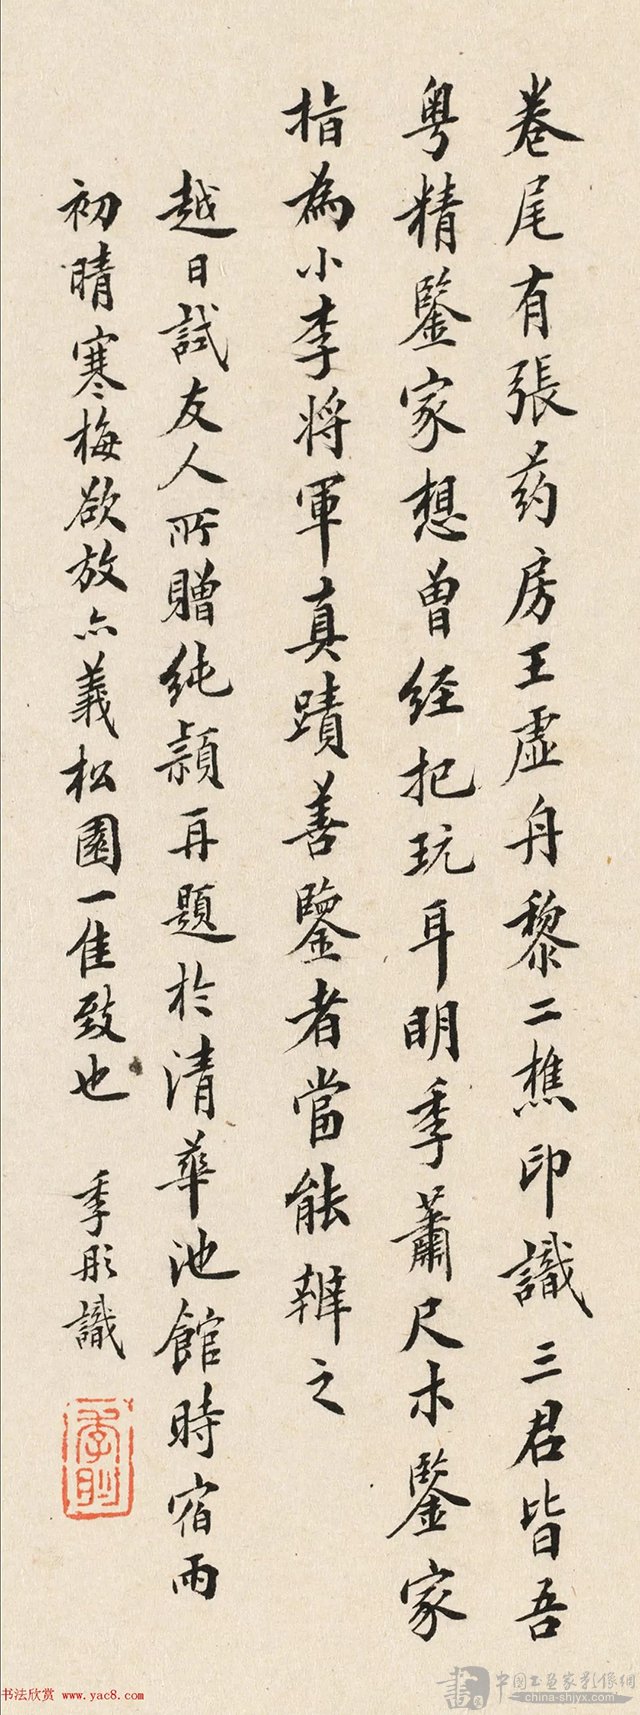 卷尾有張药房王虛舟黎二樵印識三君皆吾
粤精鑒家想曾經把玩耳明季蕭尺木鑒家
指為小李將軍真蹟善鑒者當能辨之
越日試友人所贈純穎再題於清華池館時宿雨
初晴寒梅欲放亦義松園一佳致也 季彤識
書法欣赏 www.yac8.com
中国书画家影像網
china-shjyx.com